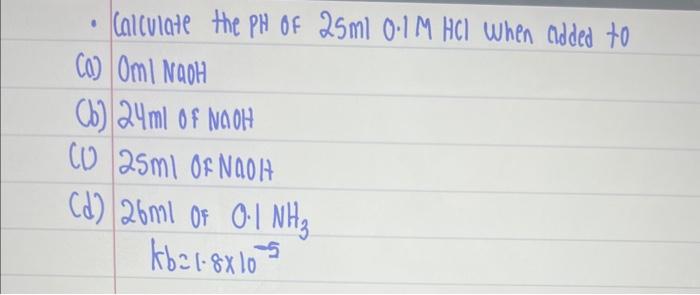 • Calculate the PH OF 25ml 0.1 M HCl when added to
(a) 0ml NaOH
(b) 24ml OF NaOH
(c) 25ml OF NaOH
(d) 26ml OF 0.1 NH₃
kb=1.8x10⁻⁵